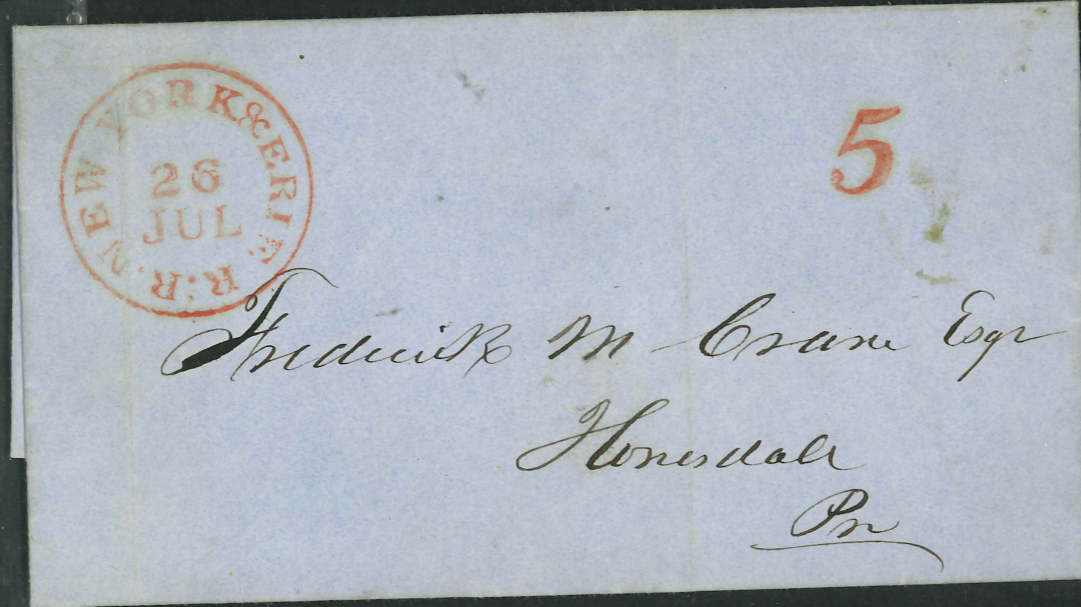 NEW YORK & ERIE R.R.
26
JUL
5
Frederick M Crane Esqr
Honesdale
Pa